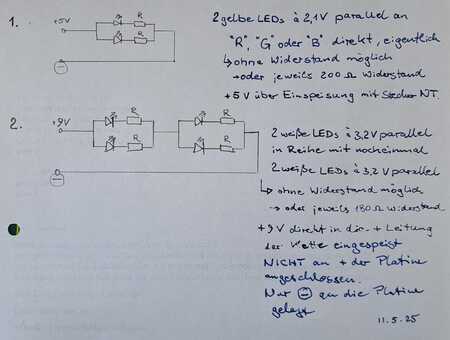 1.
+5V
R
R
2 gelbe LEDs à 2,1V parallel an
"R", "G" oder "B" direkt, eigentlich
↳ ohne Widerstand möglich
→ oder jeweils 200 Ω Widerstand
+5V über Einspeisung mit Stecker NT.
2.
+9V
R
R
R
R
2 weiße LEDs à 3,2V parallel
in Reihe mit nocheinmal
2 weiße LEDs à 3,2 V parallel
↳ ohne Widerstand möglich
→ oder jeweils 180 Ω Widerstand
+9V direkt in die + Leitung
der Kette eingespeist
NICHT an + der Platine
angeschlossen.
Nur ⊖ an die Platine
gelegt
11.5.25